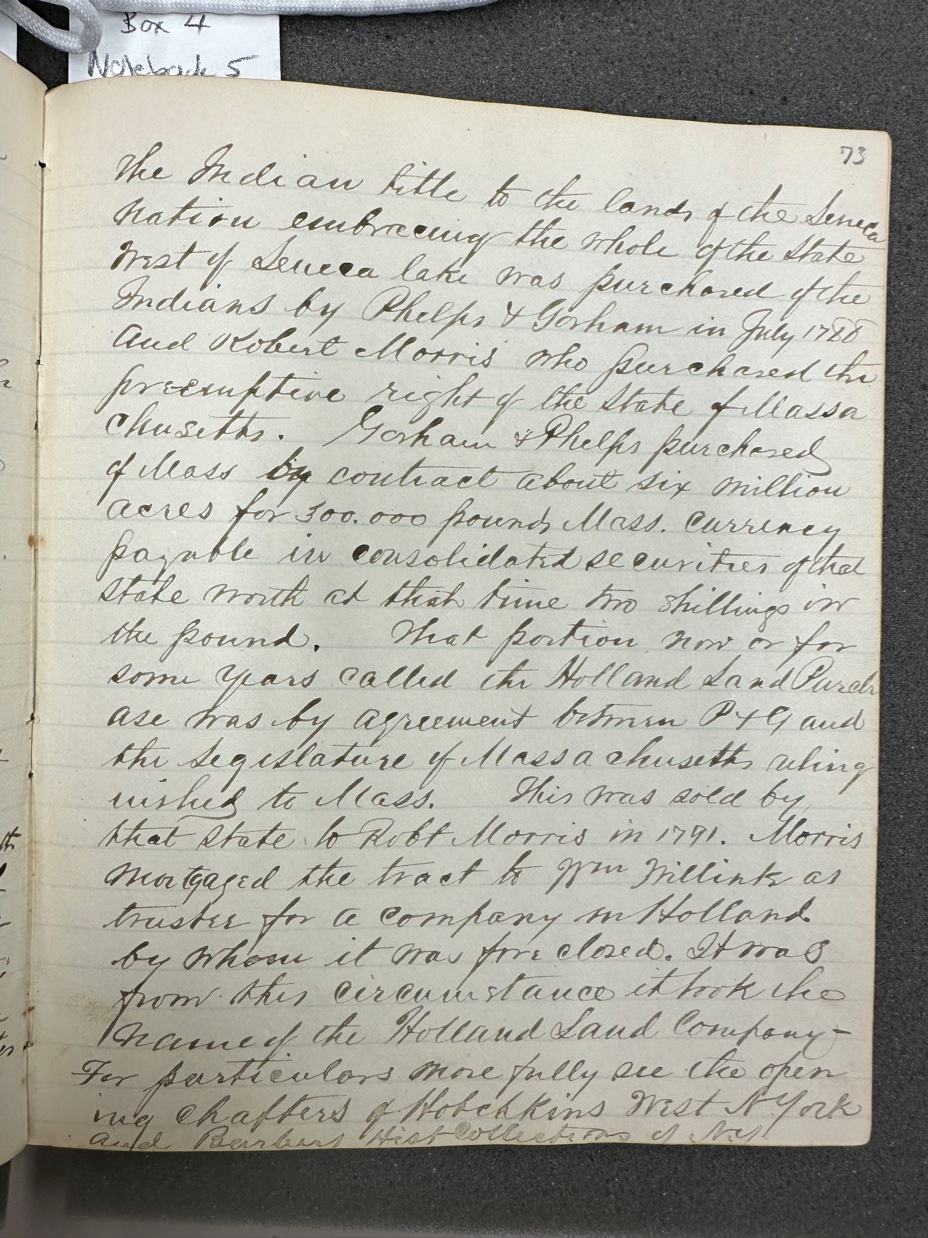 Box 4
Notebook 5
73
The Indian title to the lands of the Seneca
nation embracing the whole of the State
West of Seneca lake was purchased of the
Indians by Phelps & Gorham in July 1788
and Robert Morris who purchased the
preemptive right of the State of Massa
chusetts. Gorham & Phelps purchased
of Mass by contract about six million
acres for 300.000 pounds Mass. currency
payable in consolidated securities of that
state worth at that time two shillings in
the pound. That portion now or for
some years called the Holland Land Purch
ase was by agreement between P & G and
the Legislature of Massachusetts reling
uished to Mass. This was sold by
that State to Robt Morris in 1791. Morris
mortgaged the tract to Wm Willink as
trustee for a company in Holland
by whom it was foreclosed. It was
from this circumstance it took the
name of the Holland Land Company-
For particulars more fully see the open
ing chapters of Hotchkins West N York
and Barbers Hist Collections of N.Y